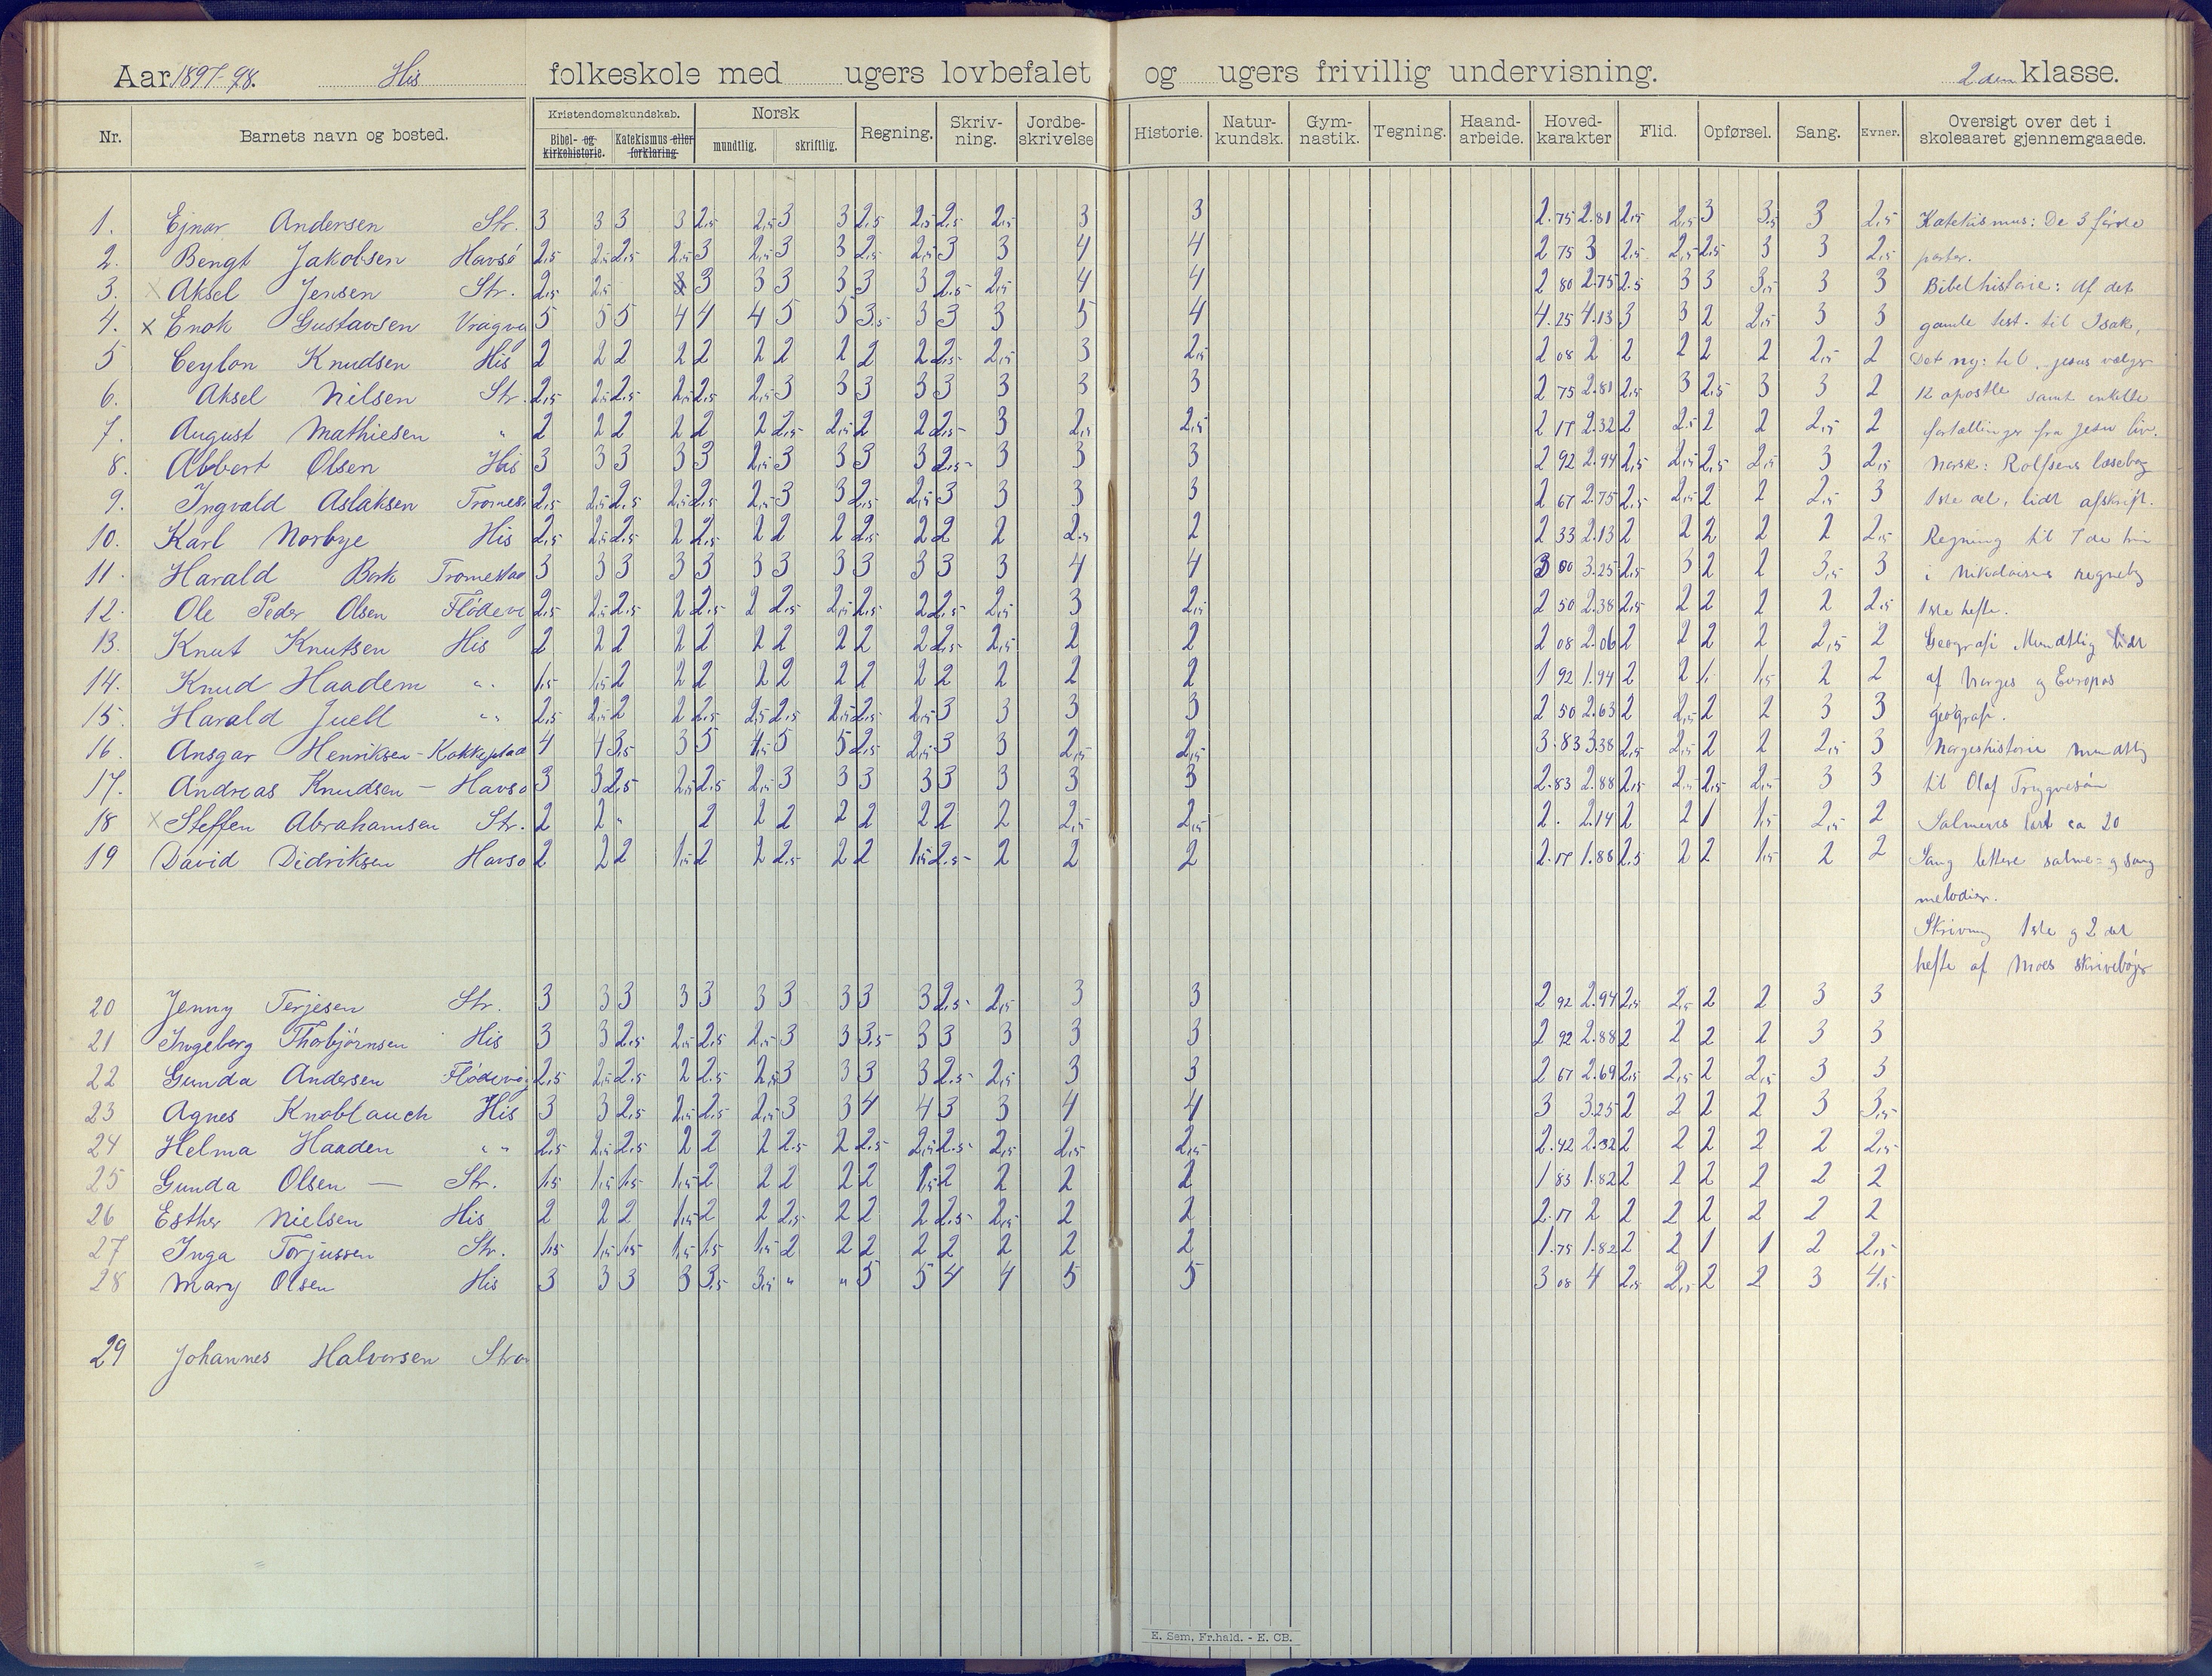 Aar 1897-98. His folkeskole med ugers lovbefalet og ugers frivillig undervisning. 2den klasse.
Nr. Barnets navn og bosted. Kristendomskundskab. Norsk Regning. Skriv-ning. Jordbe-skrivelse Historie. Natur-kundsk. Gym-nastik. Tegning. Haand-arbeide. Hoved-karakter Flid. Opførsel. Sang. Evner. Oversigt over det i skoleaaret gjennemgaaede.
Bibel- og kirkehistorie. Katekismus eller forklaring mundtlig. skriftlig.
1. Ejnar Andersen Str. 3 3 3 3 2,5 2,5 3 3 2,5 2,5 2,5 2,5 3 3 2.75 2.81 2,5 2,5 3 3,5 3 2,5 Katekismus: De 3 første
2. Bengt Jakobsen Havsö 2,5 2,5 2,5 2,5 3 2,5 3 3 2,5 2,5 3 3 4 4 2 75 3 2,5 2,5 2,5 3 3 2,5 parter.
3. x Aksel Jensen Str. 2,5 2,5 3 3 3 3 3 3 2.5 2,5 4 4 2 80 2.75 2.5 3 3 3,5 3 3 Bibelhistorie: Af det
4. x Enok Gustavsen 5 5 5 4 4 4 5 5 3.5 3 3 3 5 4 4.25 4.13 3 3 2 2,5 3 3 gamle test. til Isak,
5 Ceylon Knudsen His 2 2 2 2 2 2 2 2 2 2 2,5 2,5 3 2,5 2 08 2 2 2 2 2 2,5 2 Det ny: til Jesus vælger
6. Aksel Nilsen Str. 2,5 2,5 2,5 2,5 2,5 2,5 3 3 3 3 3 3 3 3 2 75 2.81 2,5 3 2,5 3 3 2 12 apostle samt enkelte
7. August Mathiesen " 2 2 2 2 2 2 2,5 2,5 2 2 2,5 3 2,5 2,5 2 17 2.32 2 2.5 2 2 2,5 2 fortællinger fra Jesu liv.
8. Albert Olsen His 3 3 3 3 3 2,5 3 3 3 3 2,5 3 3 3 2 92 2.94 2,5 2,5 2,5 2,5 3 2,5 Norsk: Rolfsens læsebog
9. Ingvald Aslaksen 2,5 2,5 2,5 2,5 2,5 2,5 3 3 2,5 2,5 3 3 3 3 2 67 2.75 2,5 2,5 2 2 2,5 3 1ste del, lidt afskrift.
10. Karl Norbye His 2,5 2,5 2,5 2 2,5 2 2 2 2,5 2 2 2 2,5 2 2 33 2.13 2 2 2 2 2 2,5 Regning til 7de trin
11. Harald Bork 3 3 3 3 3 3 3 3 3 3 3 3 4 4 3 00 3.25 2,5 3 2 2 3,5 3 i Nikolaisens regnebog
12. Ole Peder Olsen 2,5 2,5 2,5 2 2,5 2 2,5 2,5 2,5 2 2,5 2,5 3 2,5 2 50 2.38 2,5 2 2 2 2 2,5 1ste hefte.
13. Knut Knutsen His 2 2 2 2 2 2 2 2 2 2 2,5 2,5 2 2 2 08 2.06 2 2 2 2 2,5 2 Geografi Mundtlig lidt
14. Knud Haadem " 1,5 1,5 2 2 2 2 2 2 2 2 2 2 2 2 1 92 1.94 2 2 1 1,5 2 2 af Norges og Europas
15. Harald Juell " " 2,5 2,5 2 2 2,5 2,5 2,5 2,5 2,5 2,5 3 3 3 3 2 50 2.63 2 2,5 2 2 3 3 geografi.
16. Ansgar Henriksen - Kokkeplad 4 4 3,5 3 5 4,5 5 5 2,5 2,5 3 3 2,5 2,5 3.83 3.38 2,5 2,5 2 2 2,5 3 Norgeshistorie mundtlig
17. Andreas Knudsen - Havsö 3 3 2,5 2,5 2,5 2,5 3 3 3 3 3 3 3 3 2.83 2.88 2,5 2,5 2,5 2,5 3 3 til Olaf Trygvesön
18 x Steffen Abrahamsen Str. 2 2 " 2 2 2 2 2 2 2 2 2,5 2,5 2. 2.14 2 2 1 1,5 2,5 2 Salmevers lært ca 20
19 David Didriksen Havsö 2 2 2 1,5 2 2 2,5 2 2 1,5 2.5 2 2 2 2.17 1.88 2.5 2 2 1,5 2 2 Sang lettere salme- og sang
melodier.
Skrivning 1ste og 2det
hefte af Moes skrivebøger
20 Jenny Terjesen Str. 3 3 3 3 3 3 3 3 3 3 2.5 2,5 3 3 2 92 2.94 2,5 2,5 2 2 3 3
21 Ingeborg Thorbjörnsen His 3 3 2,5 2,5 2,5 2,5 3 3 3,5 3 3 3 3 3 2 92 2.88 2 2 2 2 3 3
22 Gunda Andersen 2,5 2,5 2.5 2 2.5 2,5 3 3 3 3 2.5 2,5 3 3 2 67 2.69 2,5 2,5 2 2,5 3 3
23 Agnes Knoblauch His 3 3 2,5 2,5 2,5 2,5 3 3 4 4 3 3 4 4 3 3.25 2 2 2 2 3 3,5
24 Helma Haaden " " 2,5 2,5 2,5 2 2 2 2.5 2 2.5 2,5 2.5 2,5 2,5 2,5 2.42 2.32 2 2 2 2 2 2,5
25 Gunda Olsen — Str. 1,5 1,5 1,5 1,5 2 2 2 2 2 1,5 2 2 2 2 1 83 1.82 2 2 2 2 2 2
26 Esther Nielsen His 2 2 2 1,5 2 2 2,5 2 2 2 2.5 2,5 2 2 2.17 2 2 2 2 2 2 2
27 Inga Torjussen Str. 1,5 1,5 1,5 1,5 1,5 1,5 2 2 2 2 2 2 2 2 1.75 1.82 2 2 1 1 2 2,5
28 Mary Olsen His 3 3 3 3 3.5 3,5 " " 5 5 4 4 5 5 3 08 4 2,5 2,5 2 2 3 4.5
29 Johannes Halvorsen
E. Sem, Fr.hald. - E. CB.